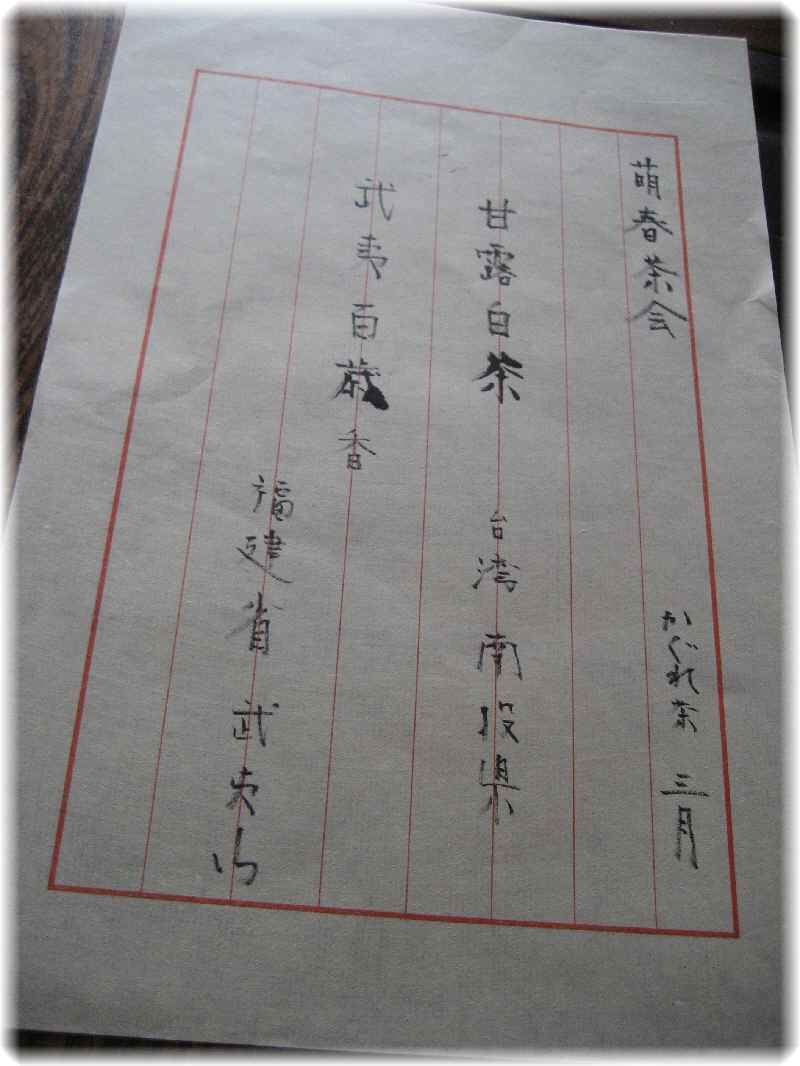 萌春茶会 かぐれ茶 三月
甘露白茶 台湾 南投県
武夷百歳香
福建省 武夷山